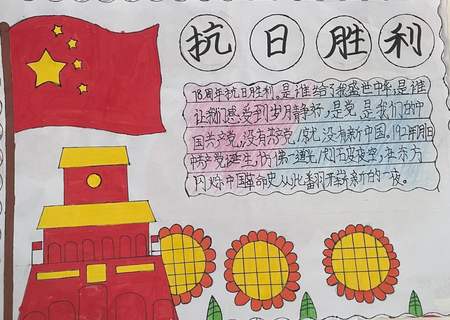 抗日胜利
78周年抗日胜利。是谁给了我盛世中华,是谁
让我们感受到岁月静好,是党,是我们的中
国共产党,没有共产党,就没有新中国,192年7月1日
中共产党诞生,仿佛一道光,划破夜空,在东方
闪烁中国革命史从此翻开崭新的一夜。